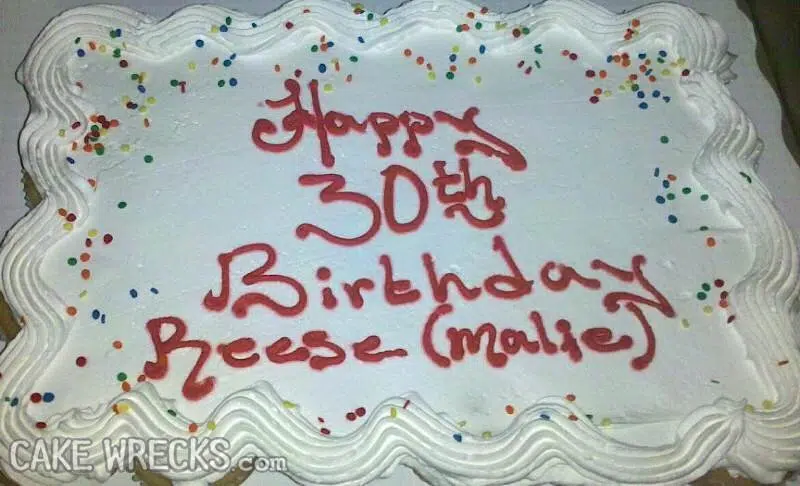 Happy
30th
Birthday
Reese (malie)
CAKE WRECKS.com